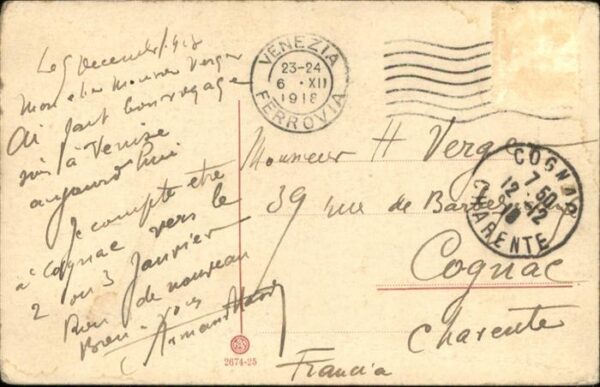 Le 5 Décembre 1913
Mon cher Monsieur Verger
Ai fait bon voyage
suis à Venise
aujourd'hui
Je compte être
à Cognac vers le
2 ou 3 Janvier
Rien de nouveau
Bien à vous
VENEZIA
23-24
6 · XII
191
FERROVIA
Monsieur H Verger
39 rue de
Cognac
Charente
Francia
COGNAC
7 50
12 - 12
CHARENTE
2674-25